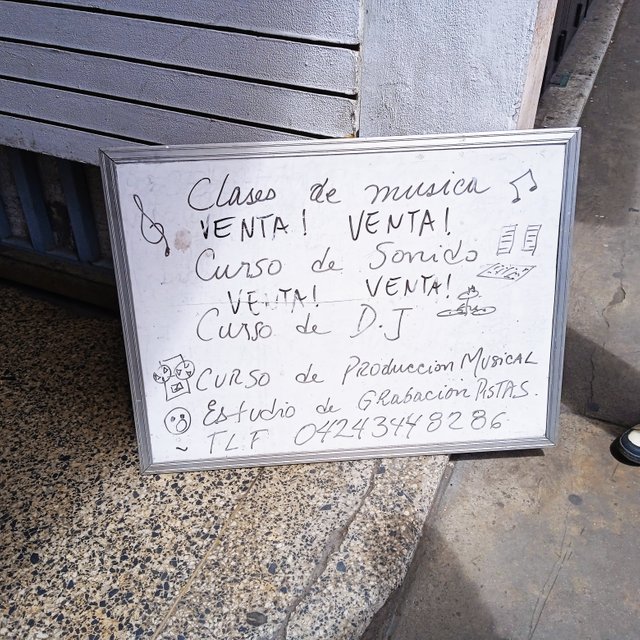 Clases de musica
VENTA! VENTA!
Curso de Sonido
VENTA! VENTA!
Curso de D.J
CURSO de PRODUCCION MUSICAL
Estudio de GRABACION PISTAS.
TLF 04243448286